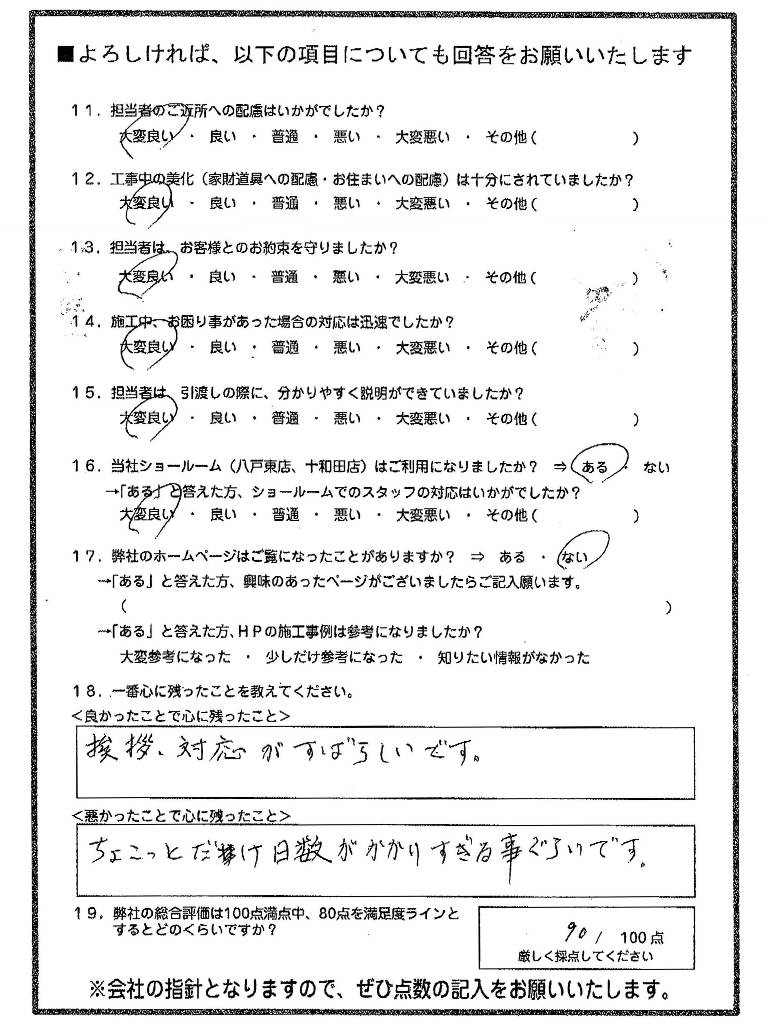 ■よろしければ、以下の項目についても回答をお願いいたします
１１．担当者のご近所への配慮はいかがでしたか？
大変良い ・ 良い ・ 普通 ・ 悪い ・ 大変悪い ・ その他（　　　）
１２．工事中の美化（家財道具への配慮・お住まいへの配慮）は十分にされていましたか？
大変良い ・ 良い ・ 普通 ・ 悪い ・ 大変悪い ・ その他（　　　）
１３．担当者は、お客様とのお約束を守りましたか？
大変良い ・ 良い ・ 普通 ・ 悪い ・ 大変悪い ・ その他（　　　）
１４．施工中、お困り事があった場合の対応は迅速でしたか？
大変良い ・ 良い ・ 普通 ・ 悪い ・ 大変悪い ・ その他（　　　）
１５．担当者は、引渡しの際に、分かりやすく説明ができていましたか？
大変良い ・ 良い ・ 普通 ・ 悪い ・ 大変悪い ・ その他（　　　）
１６．当社ショールーム（八戸東店、十和田店）はご利用になりましたか？ ⇒ ある ・ ない
→「ある」と答えた方、ショールームでのスタッフの対応はいかがでしたか？
大変良い ・ 良い ・ 普通 ・ 悪い ・ 大変悪い ・ その他（　　　）
１７．弊社のホームページはご覧になったことがありますか？ ⇒ ある ・ ない
→「ある」と答えた方、興味のあったページがございましたらご記入願います。
（　　　）
→「ある」と答えた方、ＨＰの施工事例は参考になりましたか？
大変参考になった ・ 少しだけ参考になった ・ 知りたい情報がなかった
１８．一番心に残ったことを教えてください。
＜良かったことで心に残ったこと＞
挨拶、対応がすばらしいです。
＜悪かったことで心に残ったこと＞
ちょこっとだけ日数がかかりすぎる事ぐらいです。
１９．弊社の総合評価は100点満点中、80点を満足度ラインと
するとどのくらいですか？
90 / 100点
厳しく採点してください
※会社の指針となりますので、ぜひ点数の記入をお願いいたします。